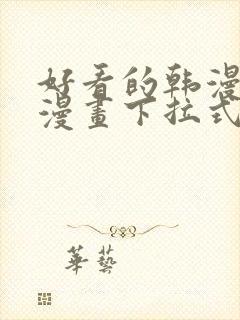 好看的韩漫
漫畫下拉式
華藝